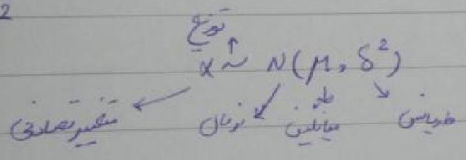 2
توزیع
x ~ N(μ, δ²)
متغیر تصادفی نرمال میانگین واریانس